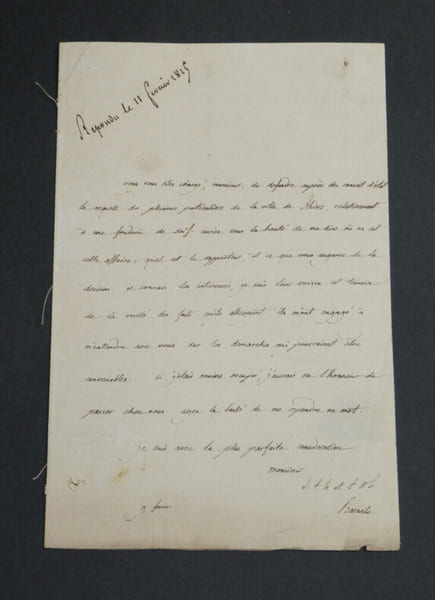 Repondu le 11 fevrier 1815
vous vous êtes chargé, monsieur, de défendre auprès du conseil d'état
la requete de plusieurs particuliers de la ville de Thiers relativement
a une fonderie de suif. auriez vous la bonté de me dire où en est
cette affaire, quel est le rapporteur, et ce que vous augurez de la
decision. je connais les interessés, je suis leur voisin et temoin
de la verité des faits qu'ils alleguent. ils m'ont engagé à
m'entendre avec vous sur les demarches qui pourraient être
convenables. si j'étais moins occupé, j'aurais eu l'honneur de
passer chez vous. ayez la bonté de me repondre un mot.
je suis avec la plus parfaite consideration
monsieur
v. t. h. et t. o. s.
9 fevrier Barante